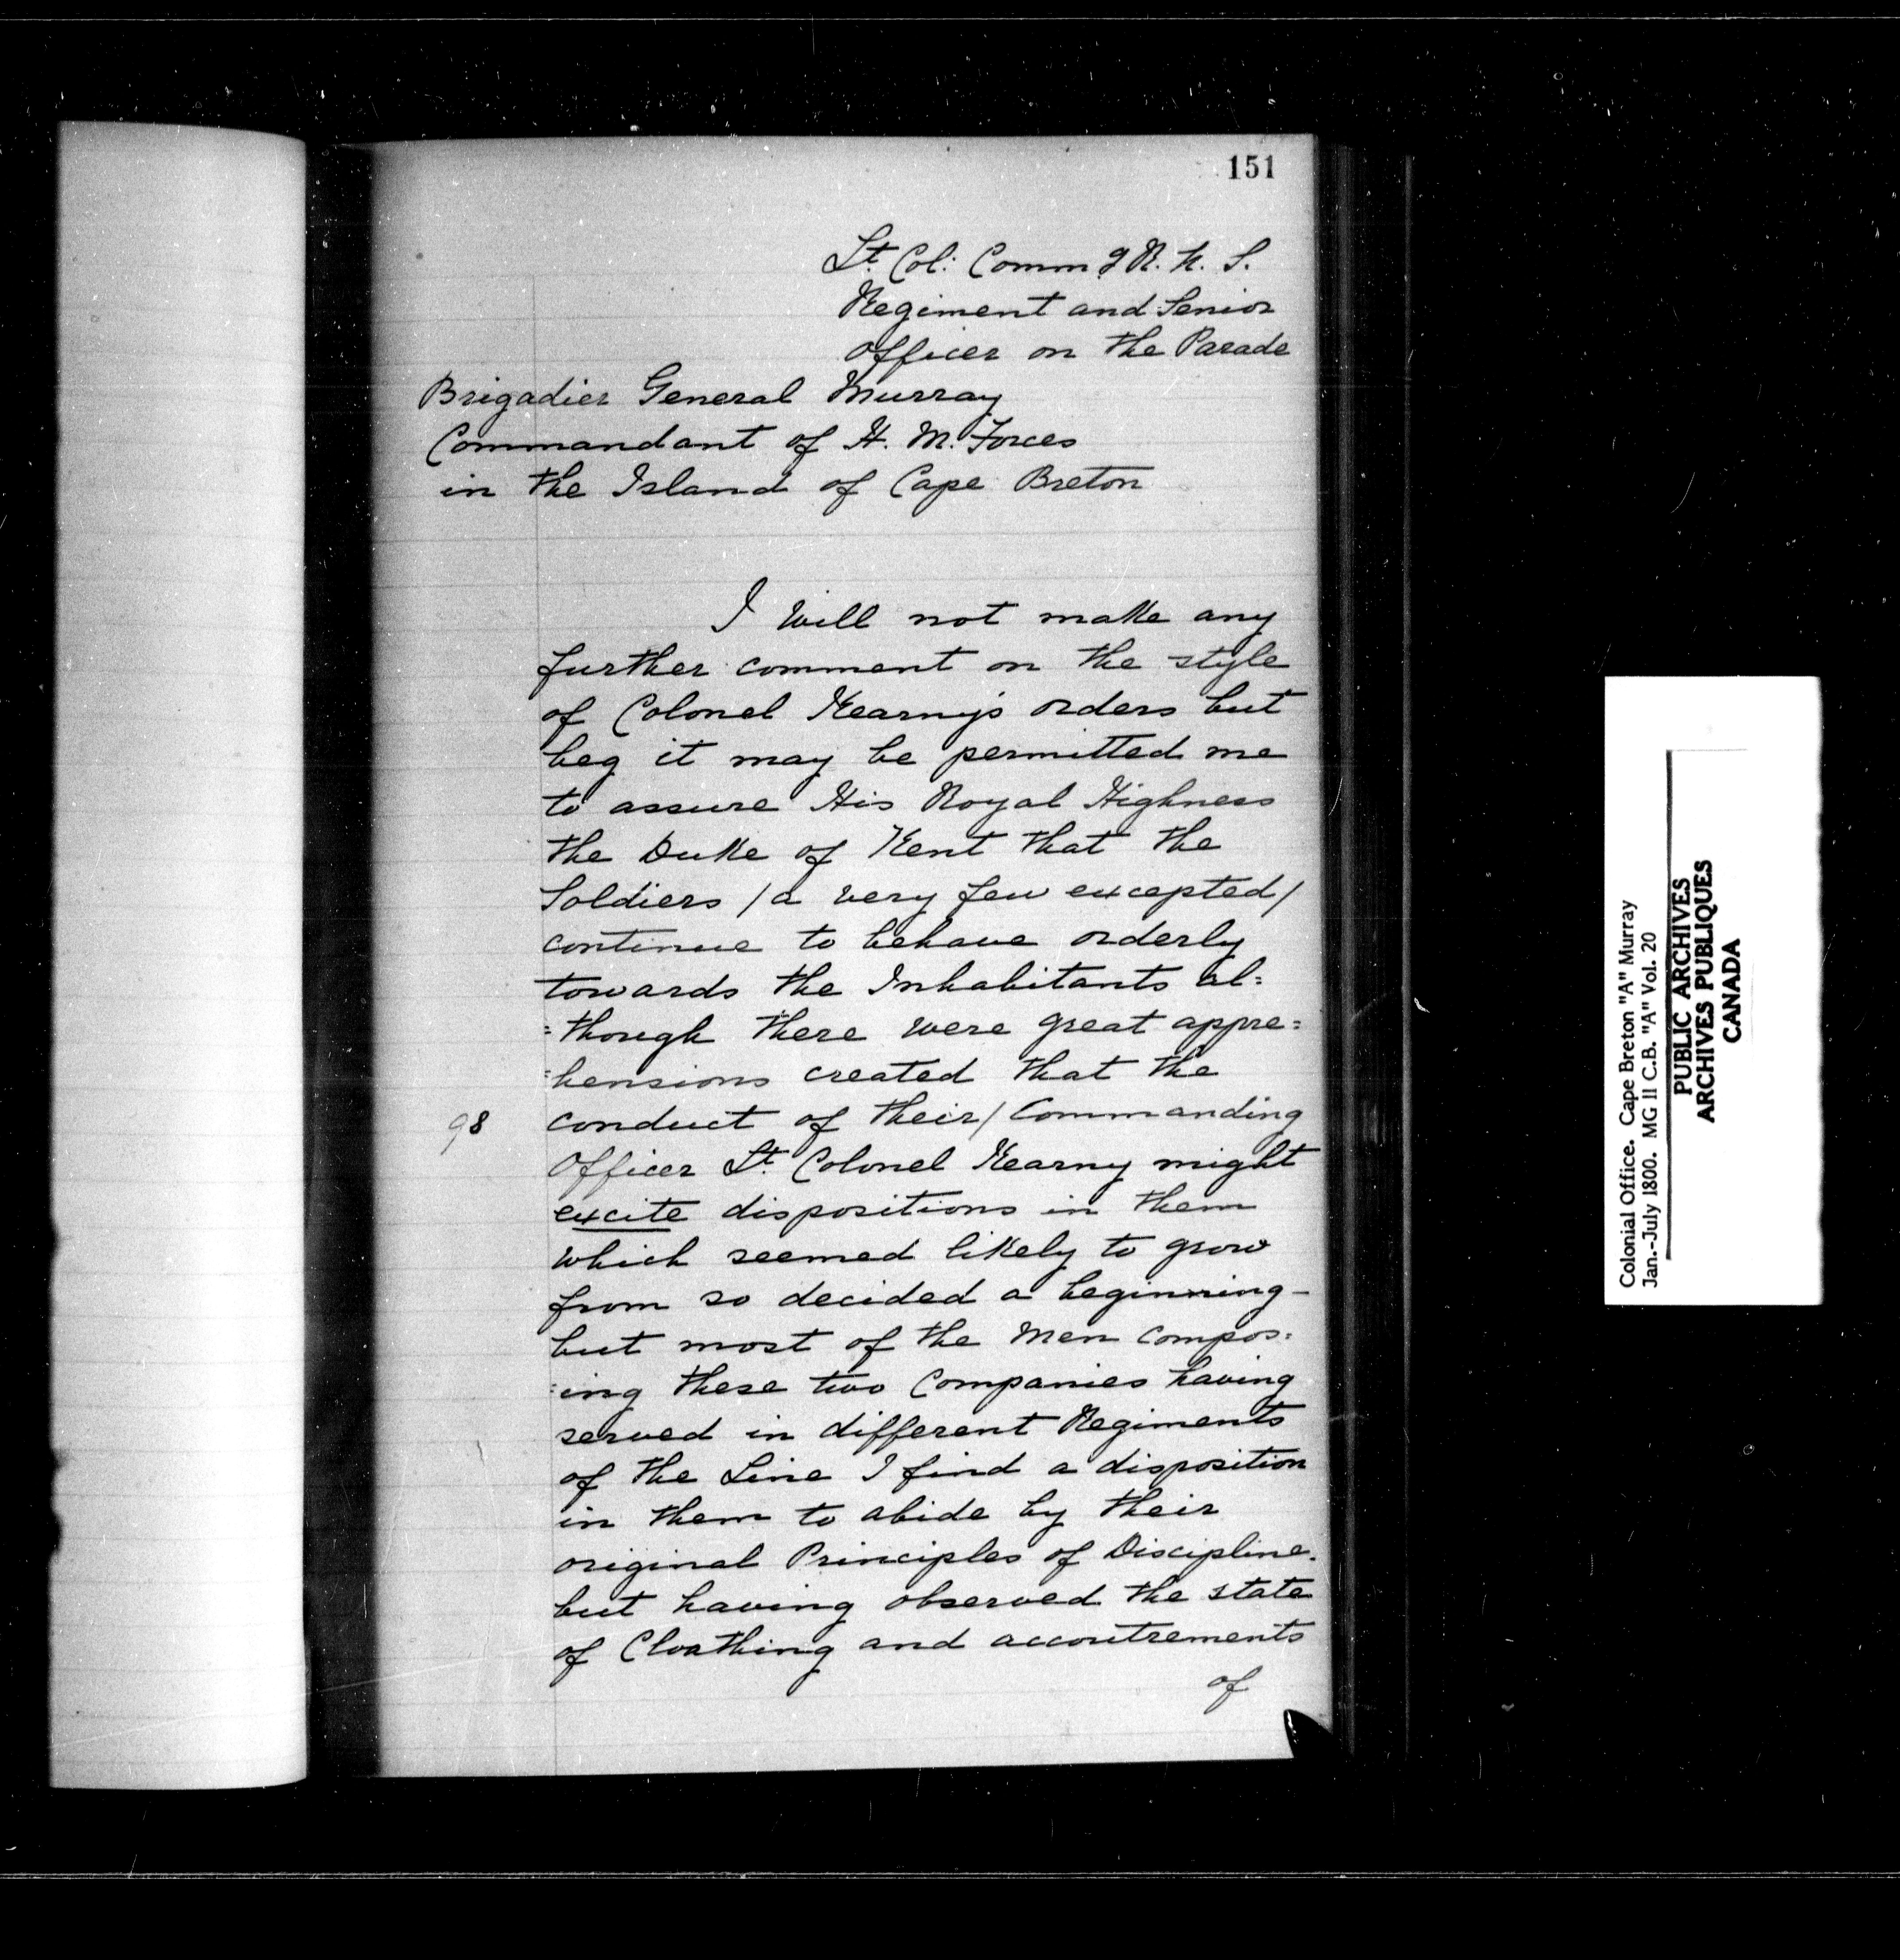 151
Lt. Col: Commg R. N. S.
Regiment and Senior
Officer on the Parade
Brigadier General Murray
Commandant of H. M. Forces
in the Island of Cape Breton
I will not make any
further comment on the style
of Colonel Kearny's orders but
beg it may be permitted me
to assure His Royal Highness
the Duke of Kent that the
Soldiers / a very few excepted /
continue to behave orderly
towards the Inhabitants al=
=though there were great appre=
=hensions created that the
98 conduct of their / Commanding
Officer Lt. Colonel Kearny might
excite dispositions in them
which seemed likely to grow
from so decided a beginning -
but most of the Men compos=
=ing these two Companies having
served in different Regiments
of the Line I find a disposition
in them to abide by their
original Principles of Discipline.
but having observed the state
of Cloathing and accoutrements
of
Colonial Office. Cape Breton "A" Murray
Jan.-July 1800. MG 11 C.B. "A" Vol. 20
PUBLIC ARCHIVES
ARCHIVES PUBLIQUES
CANADA